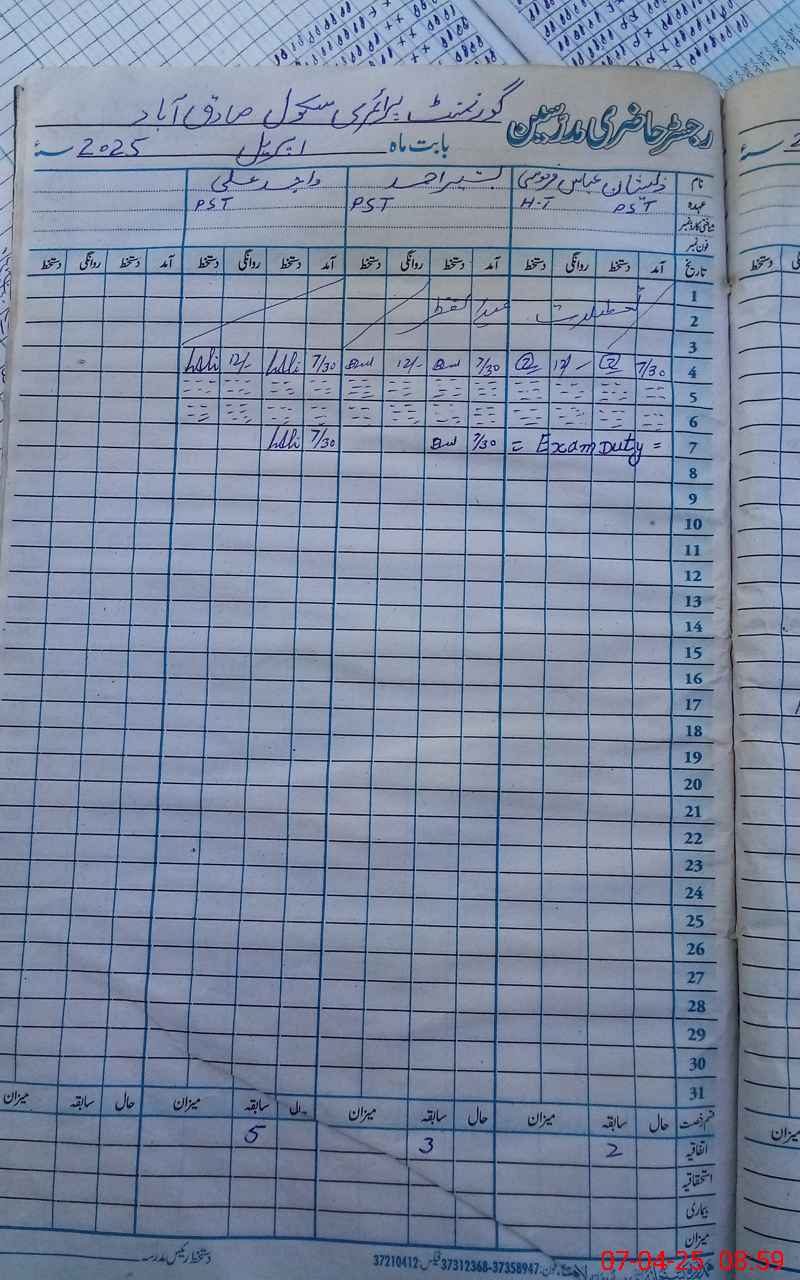 رجسٹر حاضری مدرسین گورنمنٹ پرائمری سکول صادق آباد
بابت ماہ اپریل 2025 سنہ
نام ذیشان عباس بشیر احمد واجد علی
عہدہ PST H.T PST PST
شناختی کارڈ نمبر
فون نمبر
تاریخ آمد دستخط روانگی دستخط آمد دستخط روانگی دستخط آمد دستخط روانگی دستخط آمد دستخط روانگی دستخط
1 تعطیلات عید الفطر
2
3
4 7/30 12/- 7/30 12/- 7/30 12/-
5
6
7 = Exam Duty = 7/30 7/30
8
9
10
11
12
13
14
15
16
17
18
19
20
21
22
23
24
25
26
27
28
29
30
31
قسم رخصت حال سابقہ میزان حال سابقہ میزان حال سابقہ میزان حال سابقہ میزان
اتفاقیہ 2 3 5
استحقاقیہ
بیماری
میزان
دستخط رئیس مدرسہ
فون: 37358947-37312368 فیکس: 37210412
07-04-25 08:59